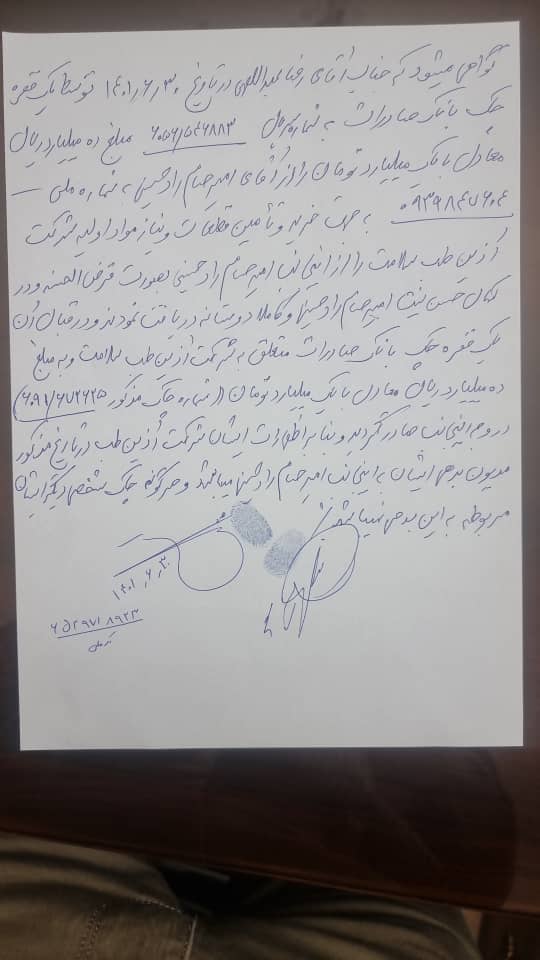 گواهی میشود که جناب آقای رضا عبداللهی در تاریخ ۱۴۰۱٫۶٫۳۰ توسط یک فقره
چک بانک صادرات به شماره سریال ۶۰۵۶/۵۴۶۸۸۳ مبلغ ده میلیارد ریال
معادل با یک میلیارد تومان را از آقای امیر حسام راد حسینی به شماره ملی
۰۹۳۹۸۴۷۶۰۴ به جهت خرید و تأمین قطعات و نیاز مواد اولیه شرکت
آذین طب سلامت را از اینجانب امیر حسام راد حسینی بصورت قرض الحسنه و در
کمال حسن نیت امیر حسام راد حسینی و کاملا دوستانه دریافت نمودند و در قبال آن
یک فقره چک بانک صادرات متعلق به شرکت آذین طب سلامت و به مبلغ
ده میلیارد ریال معادل با یک میلیارد تومان (شماره چک مذکور ۶۰۹۱/۶۷۲۶۲۵)
در وجه اینجانب صادر گردید و بنا بر اظهارات ایشان شرکت آذین طب در تاریخ مذکور
مدیون بدهی ایشان به اینجانب امیر حسام راد حسینی میباشد و هرگونه چک شخص دیگر ایشان
مربوطه به این بدهی نمیباشد
۱۴۰۱٫۶٫۳۰
۶۵۲۹۷۱۸۹۲۳